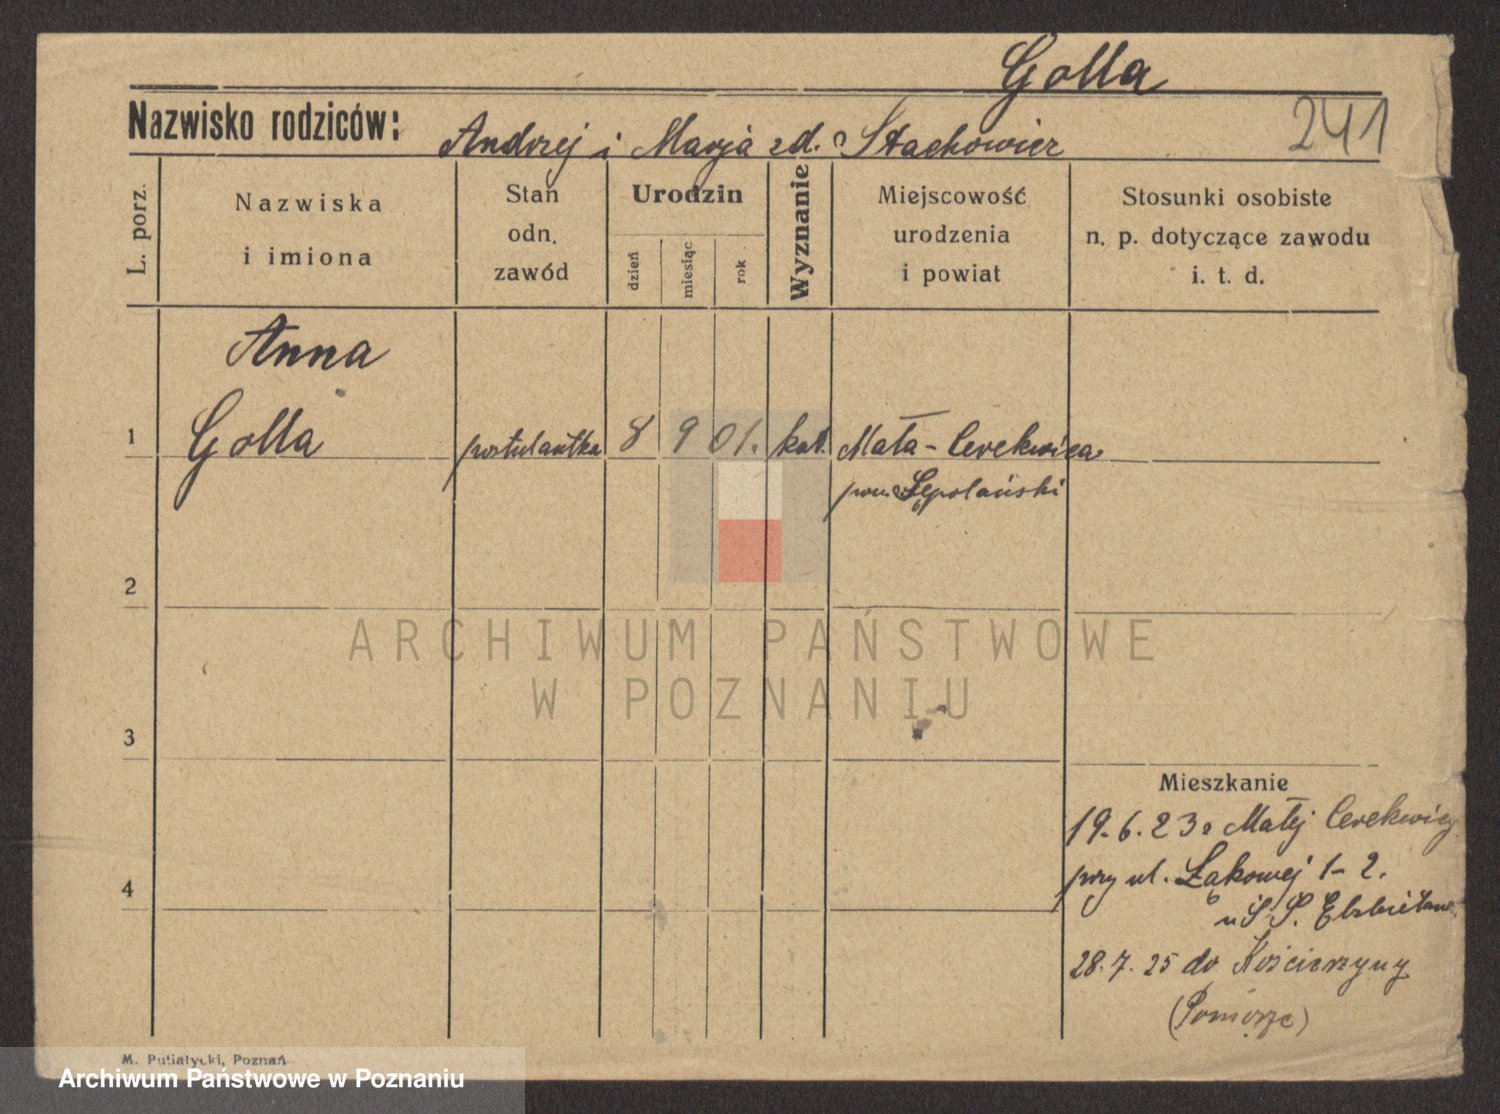 Golla
Nazwisko rodziców: Andrzej i Marja zd. Stachowicz
241
L. porz.
Nazwiska
i imiona
Stan
odn.
zawód
Urodzin
dzień
miesiąc
rok
Wyznanie
Miejscowość
urodzenia
i powiat
Stosunki osobiste
n. p. dotyczące zawodu
i. t. d.
Anna
1 Golla postulantka 8 9 01. kat. Mała-Cerekwica
pow. Sępolański
2
ARCHIWUM PAŃSTWOWE
W POZNANIU
3
Mieszkanie
19.6.23 z Małej Cerekwicy
przy ul. Łąkowej 1-2.
4
u S.S. Elżbietanek
28.7.25 do Kościerzyny
(Pomorze)
M. Putiatycki, Poznań
Archiwum Państwowe w Poznaniu